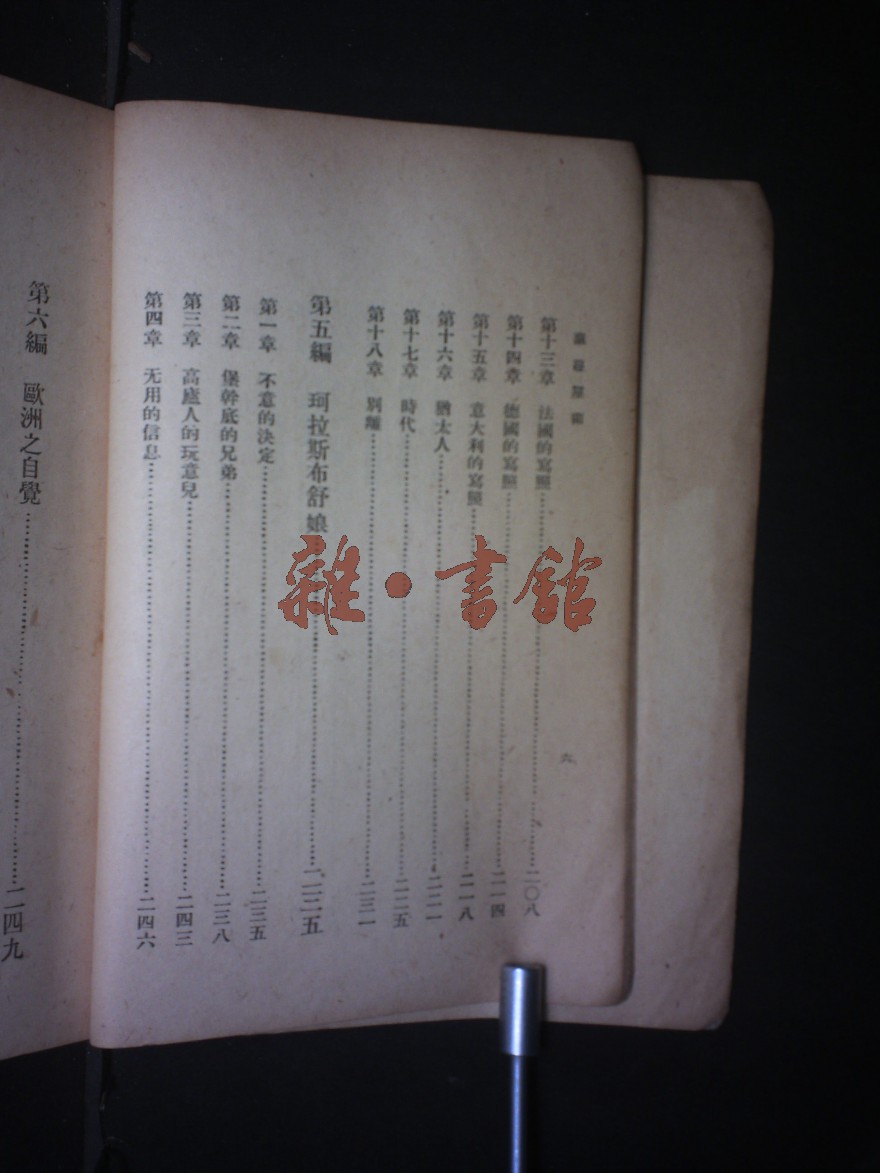 六
第十三章　法國的寫照……二〇八
第十四章　德國的寫照……二一四
第十五章　意大利的寫照……二一八
第十六章　猶太人……二二一
第十七章　時代……二二五
第十八章　別離……二三一
第五編　珂拉斯布舒娘……二三五
第一章　不意的決定……二三五
第二章　堡幹底的兄弟……二三八
第三章　高盧人的玩意兒……二四三
第四章　无用的信息……二四六
第六編　歐洲之自覺……二四九
雜·書館